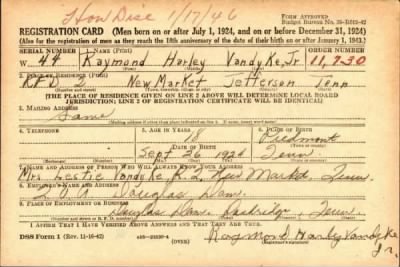 Hon Disc 1/17/46
FORM APPROVED
Budget Bureau No. 33-R012-42
REGISTRATION CARD—(Men born on or after July 1, 1924, and on or before December 31, 1924)
(Also for the registration of men as they reach the 18th anniversary of the date of their birth on or after January 1, 1943.)
SERIAL NUMBER 1. NAME (Print) ORDER NUMBER
W 44 Raymond Harley Vandyke, Jr 11,730
2. PLACE OF RESIDENCE (Print)
RFD 2 New Market Jefferson Tenn
[THE PLACE OF RESIDENCE GIVEN ON LINE 2 ABOVE WILL DETERMINE LOCAL BOARD
JURISDICTION; LINE 2 OF REGISTRATION CERTIFICATE WILL BE IDENTICAL]
3. MAILING ADDRESS
Same
4. TELEPHONE 5. AGE IN YEARS 6. PLACE OF BIRTH
18 Piedmont
DATE OF BIRTH
Sept 26 1924 Tenn
7. NAME AND ADDRESS OF PERSON WHO WILL ALWAYS KNOW YOUR ADDRESS
Mrs. Leslie Vandyke, R. 2, New Market, Tenn.
8. EMPLOYER'S NAME AND ADDRESS
Douglas Dam
9. PLACE OF EMPLOYMENT OR BUSINESS
Douglas Dam, Dandridge, Tenn.
I AFFIRM THAT I HAVE VERIFIED ABOVE ANSWERS AND THAT THEY ARE TRUE.
DSS Form 1 (Rev. 11-16-42) (OVER) Raymond Harley Vandyke
Jr.